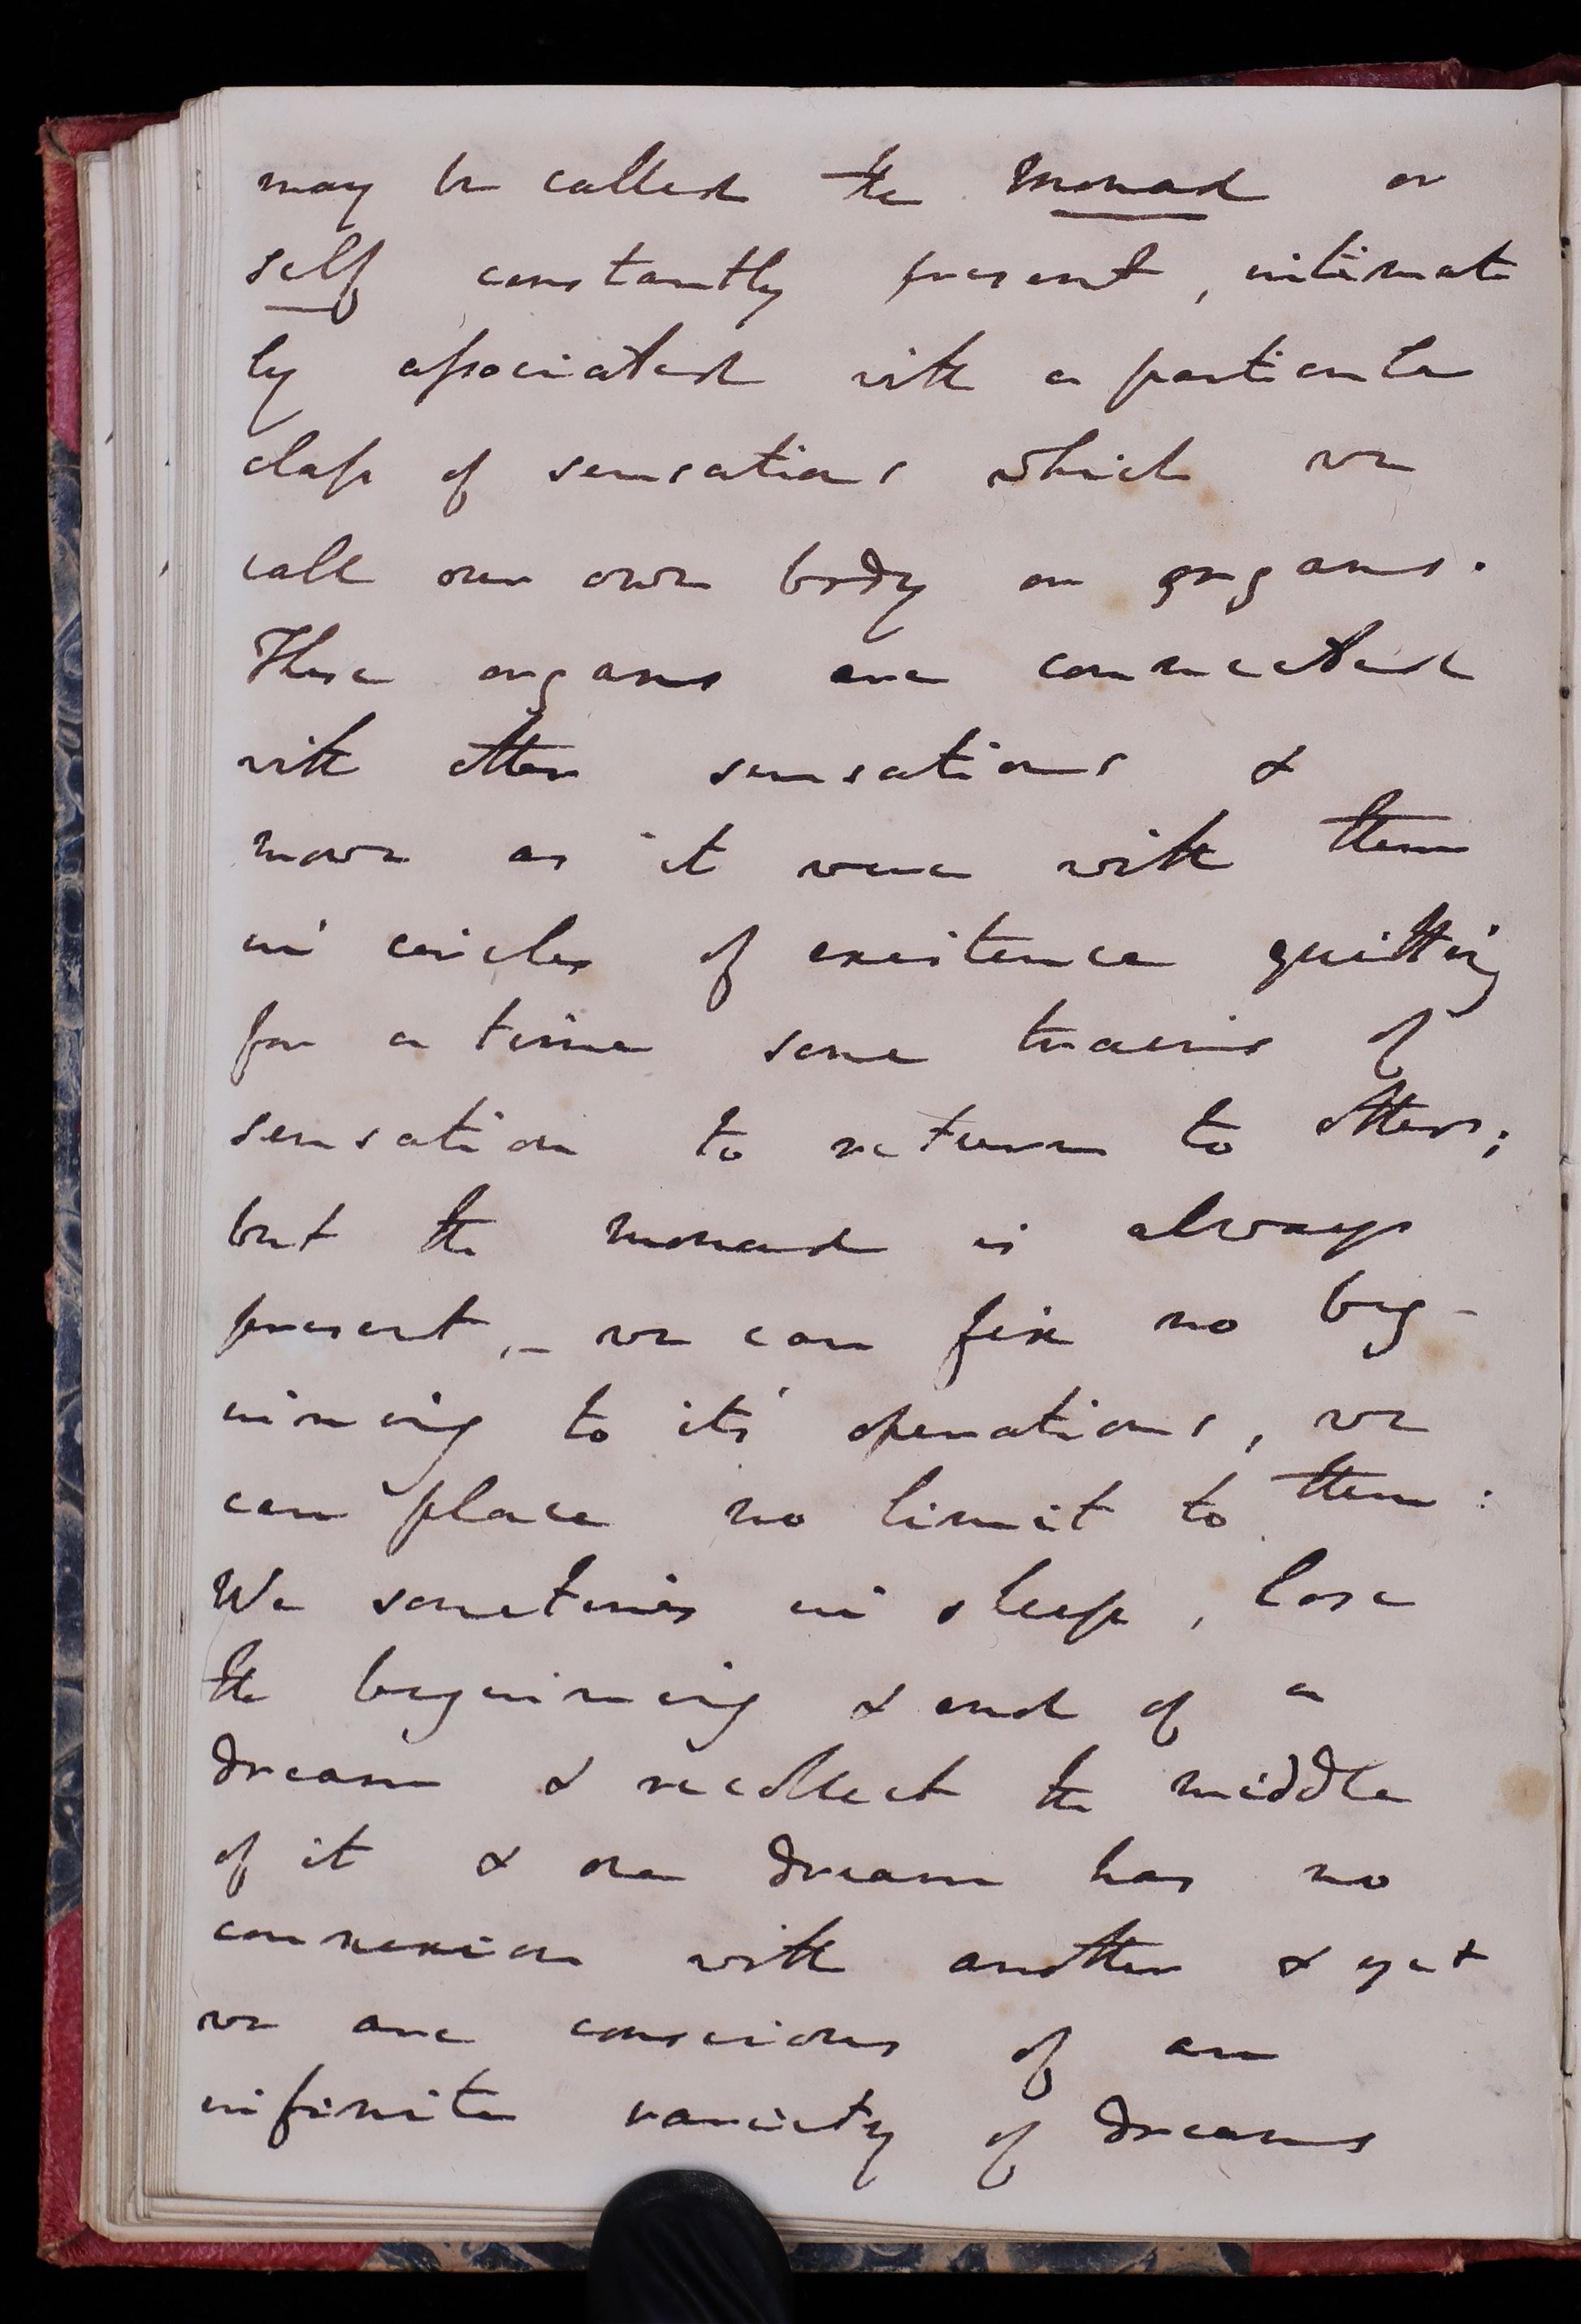 may be called the monad or
self constantly present, intimate
ly associated with a particular
class of sensations which we
call our own body or organs.
These organs are connected
with other sensations &
move as it were with them
in circles of existence quitting
for a time some trains of
sensation to return to others;
but the monad is always
present, – we can fix no beg-
inning to its' operations, we
can place no limit to them:
We sometimes in sleep, lose
the beginning & end of a
dream & recollect the middle
of it & one dream has no
connexion with another & yet
we are conscious of an
infinite variety of dreams